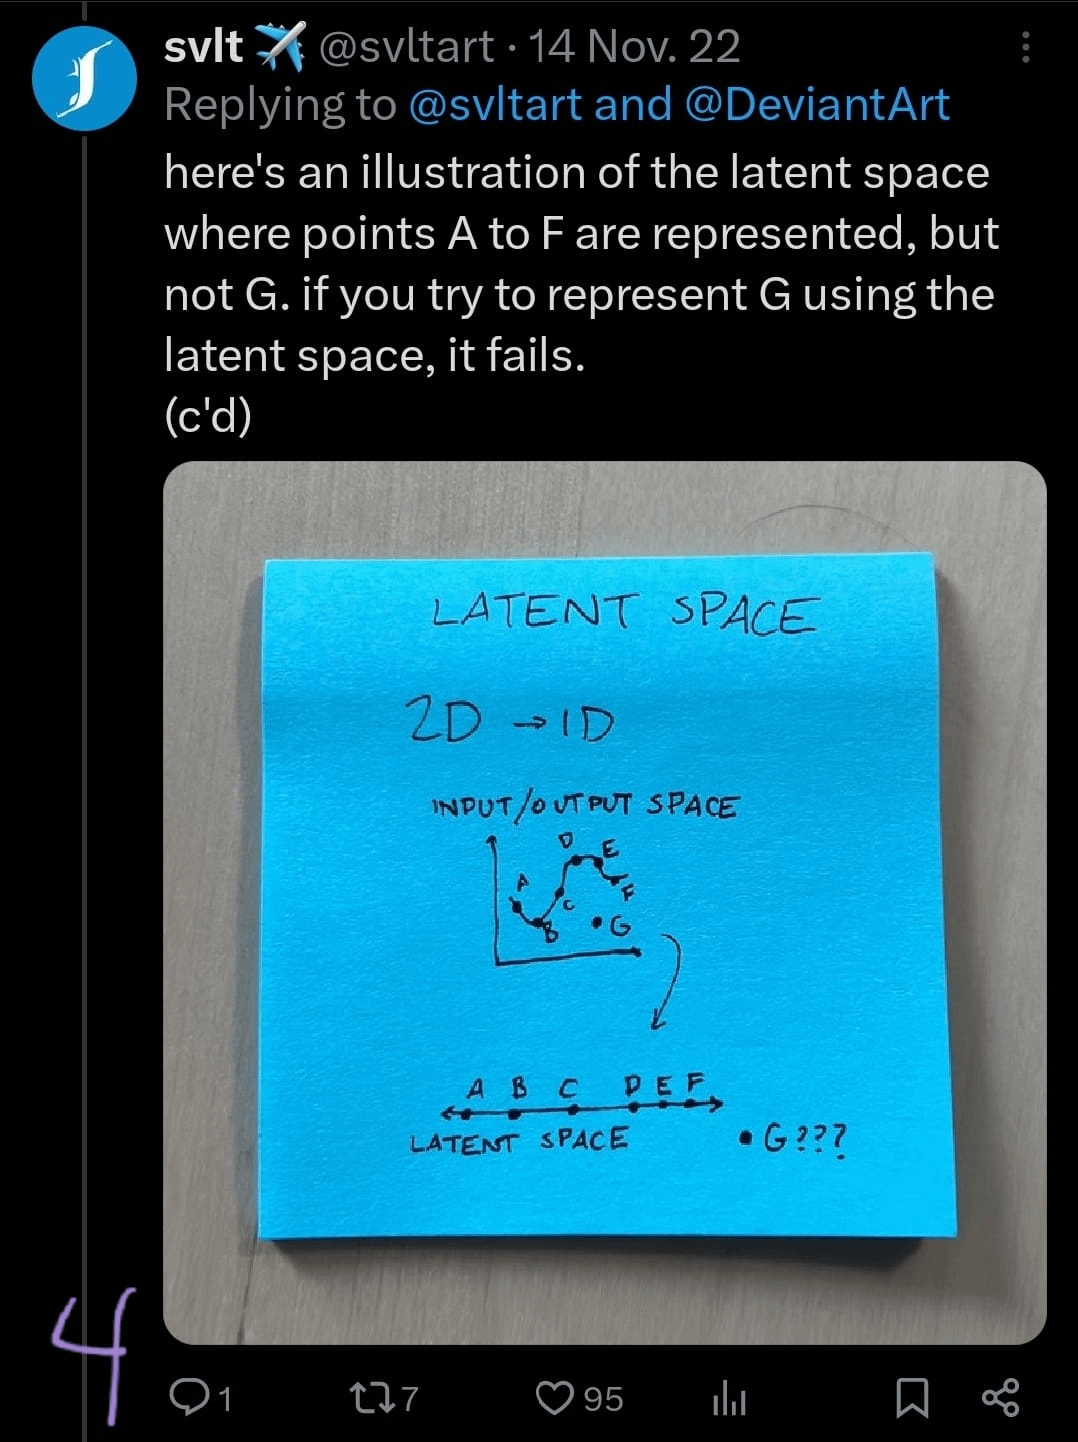 svlt ✈️ @svltart · 14 Nov. 22
Replying to @svltart and @DeviantArt
here's an illustration of the latent space
where points A to F are represented, but
not G. if you try to represent G using the
latent space, it fails.
(c'd)
LATENT SPACE
2D → 1D
INPUT/OUTPUT SPACE
D
E
A
F
C
B
G
A B C D E F
LATENT SPACE
G???
4
1 7 95